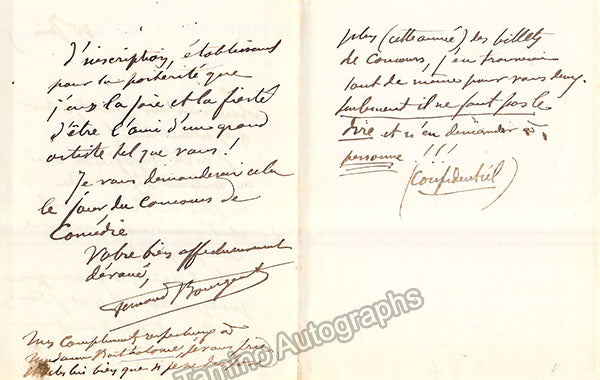 d'inscription, établissant
pour la postérité que
j'eus la joie et la fierté
d'être l'ami d'un grand
artiste tel que vous !
Je vous demanderai cela
le jour du Concours de
Comédie
Votre bien affectueusement
dévoué,
Fernand Bourgeat
Mes Compliments respectueux à
Madame je vous prie
bien que si je
plus (cette année) des billets
de Concours, j'en trouverai
tout de même pour vous deux.
Seulement il ne faut pas le
dire et n'en demander à
personne !!!
(Confidentiel)
Tamino Autographs